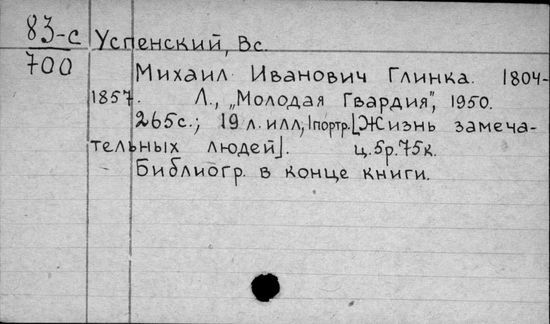 83-с
700
Успенский, Вс.
Михаил Иванович Глинка. 1804-
1857. Л., „Молодая Гвардия", 1950.
265с.; 19 л. илл, 1портр. [Жизнь замеча-
тельных людей]. ц.5р.75к.
Библиогр. в конце книги.